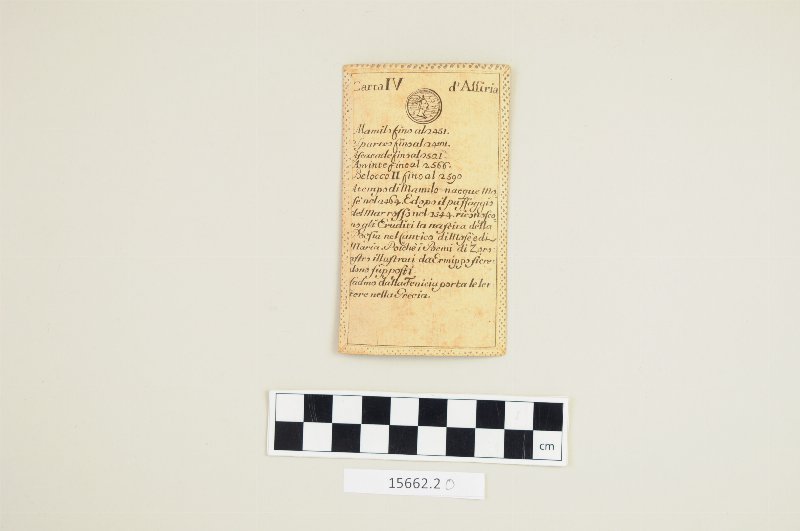 Carta IV d'Assiria
Mamilo fino al 2451.
Sparteo fino al 2491.
Ascacade fino al 2521.
Aminte fino al 2566.
Belocco II fino al 2590
tempo di Mamilo nacque Mo-
sè nel 2464. E dopo il passaggio
del Mar rosso nel 2544. riconosco-
no gli Eruditi la nascita della
Poesia nel Cantico di Mosè e di
Maria. Poichè i Poemi di Zoro-
astro illustrati da Ermippo si cre-
dono supposti
Cadmo dalla Fenicia porta le let-
tere nella Grecia.
cm
15662.2